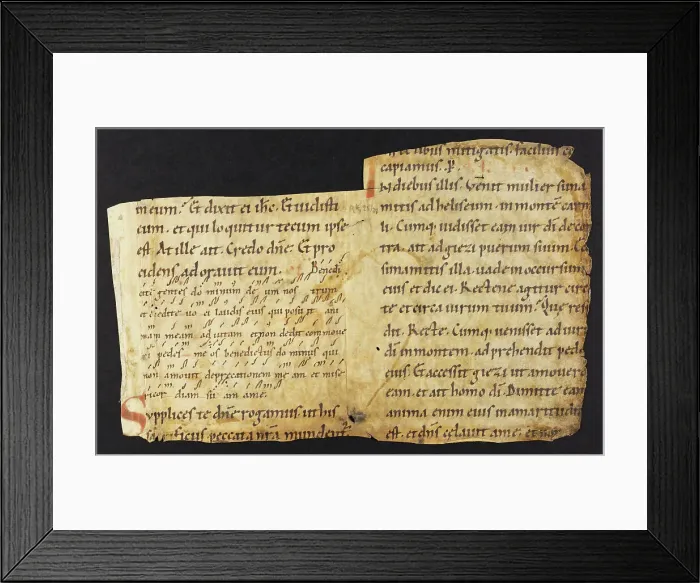 meum. Et dixit ei ihc. Et uidisti
eum. et qui loquitur tecum ipse
est. At ille ait. Credo dñe. Et pro
cidens adorauit eum. Benedi
cite gentes do minum de um nos trum
et obedite uo ci laudis eius qui posu it ani
mam meam ad uitam et non dedit commoue
ri pedes me os benedictus do minus qui
non amouit deprecationem me am et mise
ricor diam su am ame.
Supplices te dñe rogamus ut his
sacrificiis peccata nra mundent
mitigatis. facilius
capiamus. P.
Indiebus illis. Uenit mulier suna
mitis ad heliseum. in montem carm
li. Cumq. uidisset eam uir di de con
tra. ait ad giezi puerum suum.
sunamitis illa. uade in occursum
eius et dic ei. Rectene agitur circa
te et circa uirum tuum. Que res
dit. Recte. Cumq. uenisset ad uir
di in montem. adprehendit ped
eius. Et accessit giezi ut amoueret
eam. et ait homo di. Dimitte eam
anima enim eius in amaritudi
est. et dns celauit a me. et non